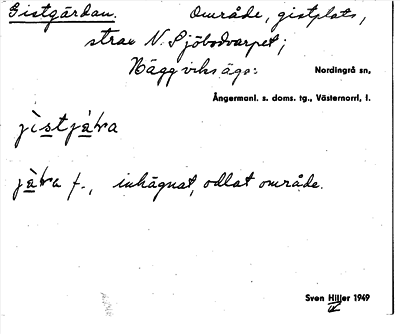 Gistgärdan. Område, gistplats,
strax N. Sjöbodvarpet;
Häggviks ägo: Nordingrå sn,
Ångermanl. s. doms. tg., Västernorrl. l.
jìstjàra
jàra f., inhägnat, odlat område.
Sven Hiller 1949